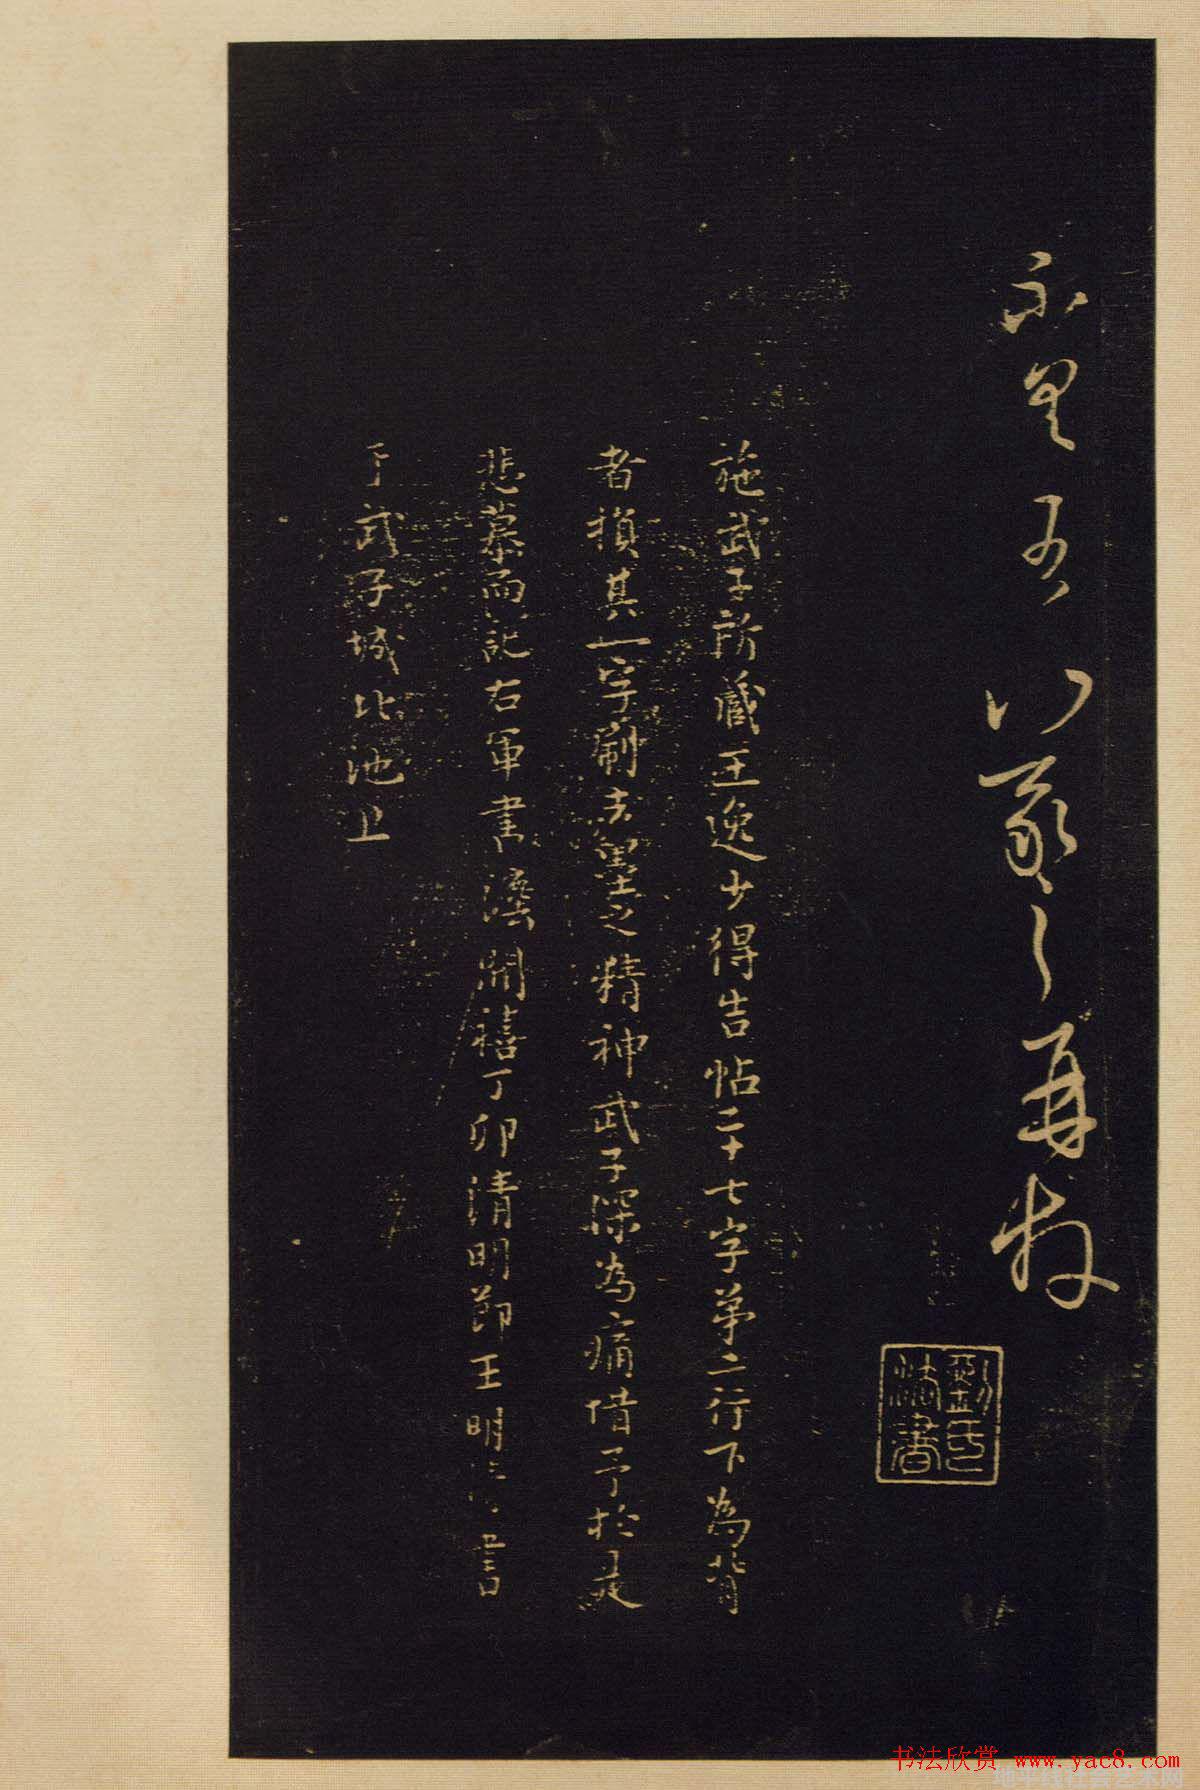 不具 羲之再拜
劉氏法書
施武子所藏王逸少得告帖二十七字第二行下為背
者損其一字刷去墨之精神武子深為痛惜予於是
悲慕而記右軍書法開禧丁卯清明節王明 書
于武子城北池上
书法欣赏 www.yac8.com